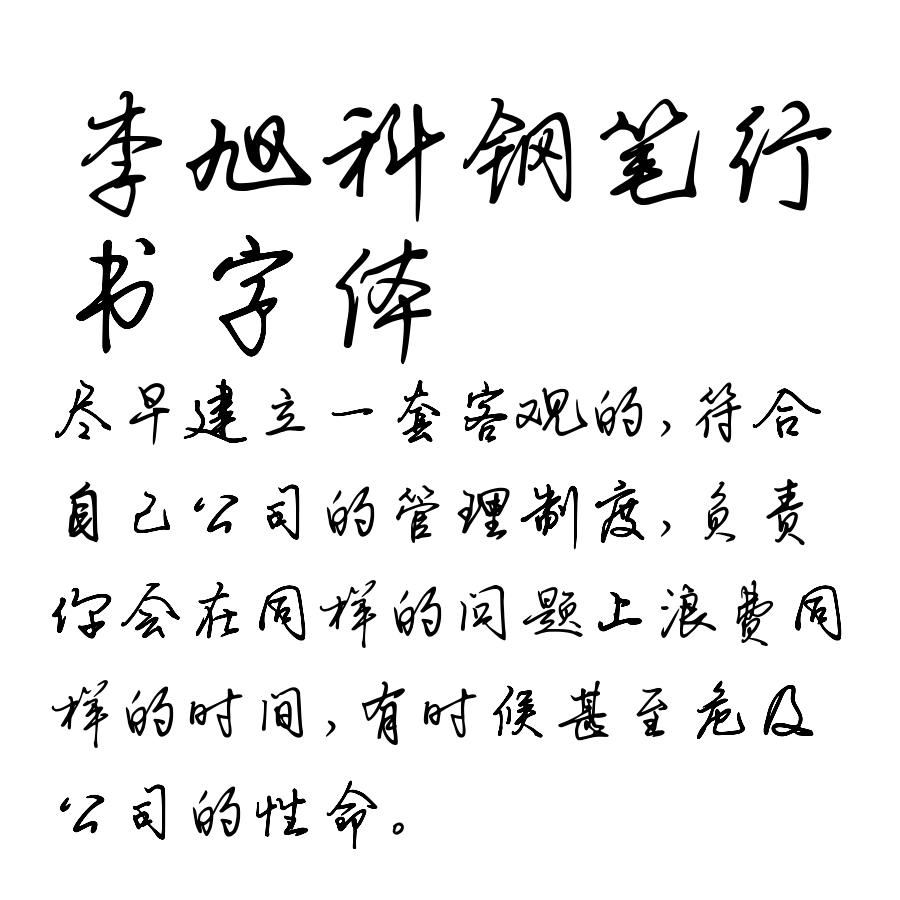 李旭科钢笔行
书字体
尽早建立一套客观的,符合
自己公司的管理制度,负责
你会在同样的问题上浪费同
样的时间,有时候甚至危及
公司的性命。